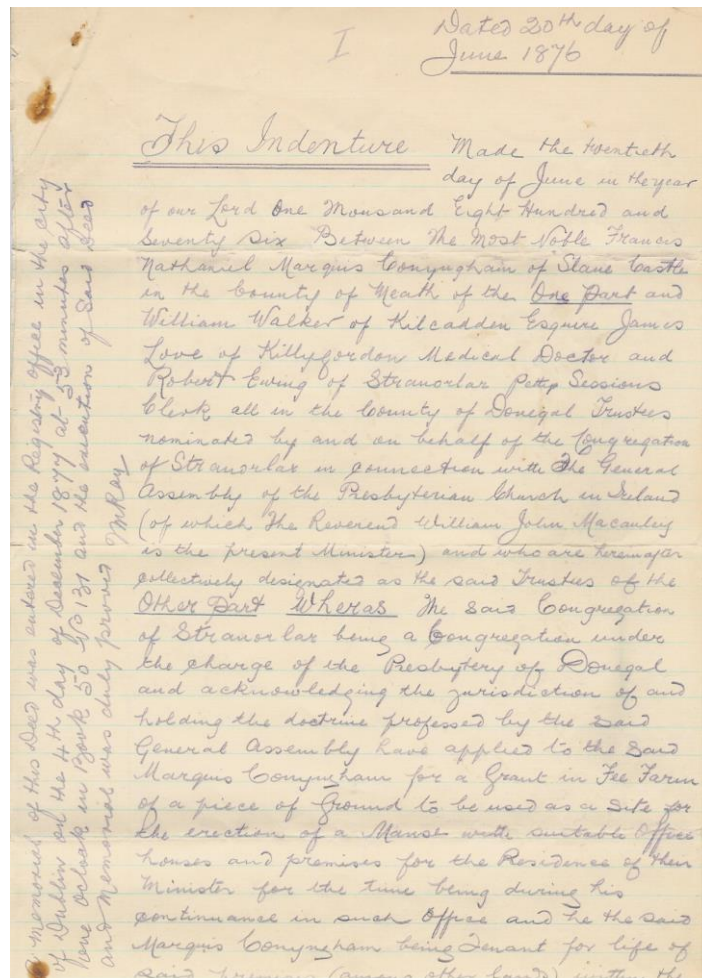 I
Dated 20th day of
June 1876
This Indenture Made the twentieth
day of June in the year
of our Lord One Thousand Eight Hundred and
Seventy Six Between The Most Noble Francis
Nathaniel Marquis Conyngham of Slane Castle
in the County of Meath of the One Part and
William Walker of Kilcadden Esquire James
Love of Killygordon Medical Doctor and
Robert Ewing of Stranorlar Petty Sessions
Clerk all in the County of Donegal Trustees
nominated by and on behalf of the Congregation
of Stranorlar in connection with The General
Assembly of the Presbyterian Church in Ireland
(of which The Reverend William John Macauley
is the present Minister) and who are hereinafter
collectively designated as the said Trustees of the
Other Part Wheras The said Congregation
of Stranorlar being a Congregation under
the charge of the Presbytery of Donegal
and acknowledging the jurisdiction of and
holding the doctrine professed by the said
General Assembly have applied to the said
Marquis Conyngham for a Grant in Fee Farm
of a piece of Ground to be used as a site for
the erection of a Manse with suitable Office
houses and premises for the Residence of their
Minister for the time being during his
continuance in such Office and he the said
Marquis Conyngham being Tenant for life of
said premises (among other lands) with the
a Memorial of this Deed was entered in the Registry Office in the City
of Dublin on the 4th day of December 1877 at 53 minutes after
one Oclock in Book 50 No 131 and the execution of Said Deed
and Memorial was duly proved